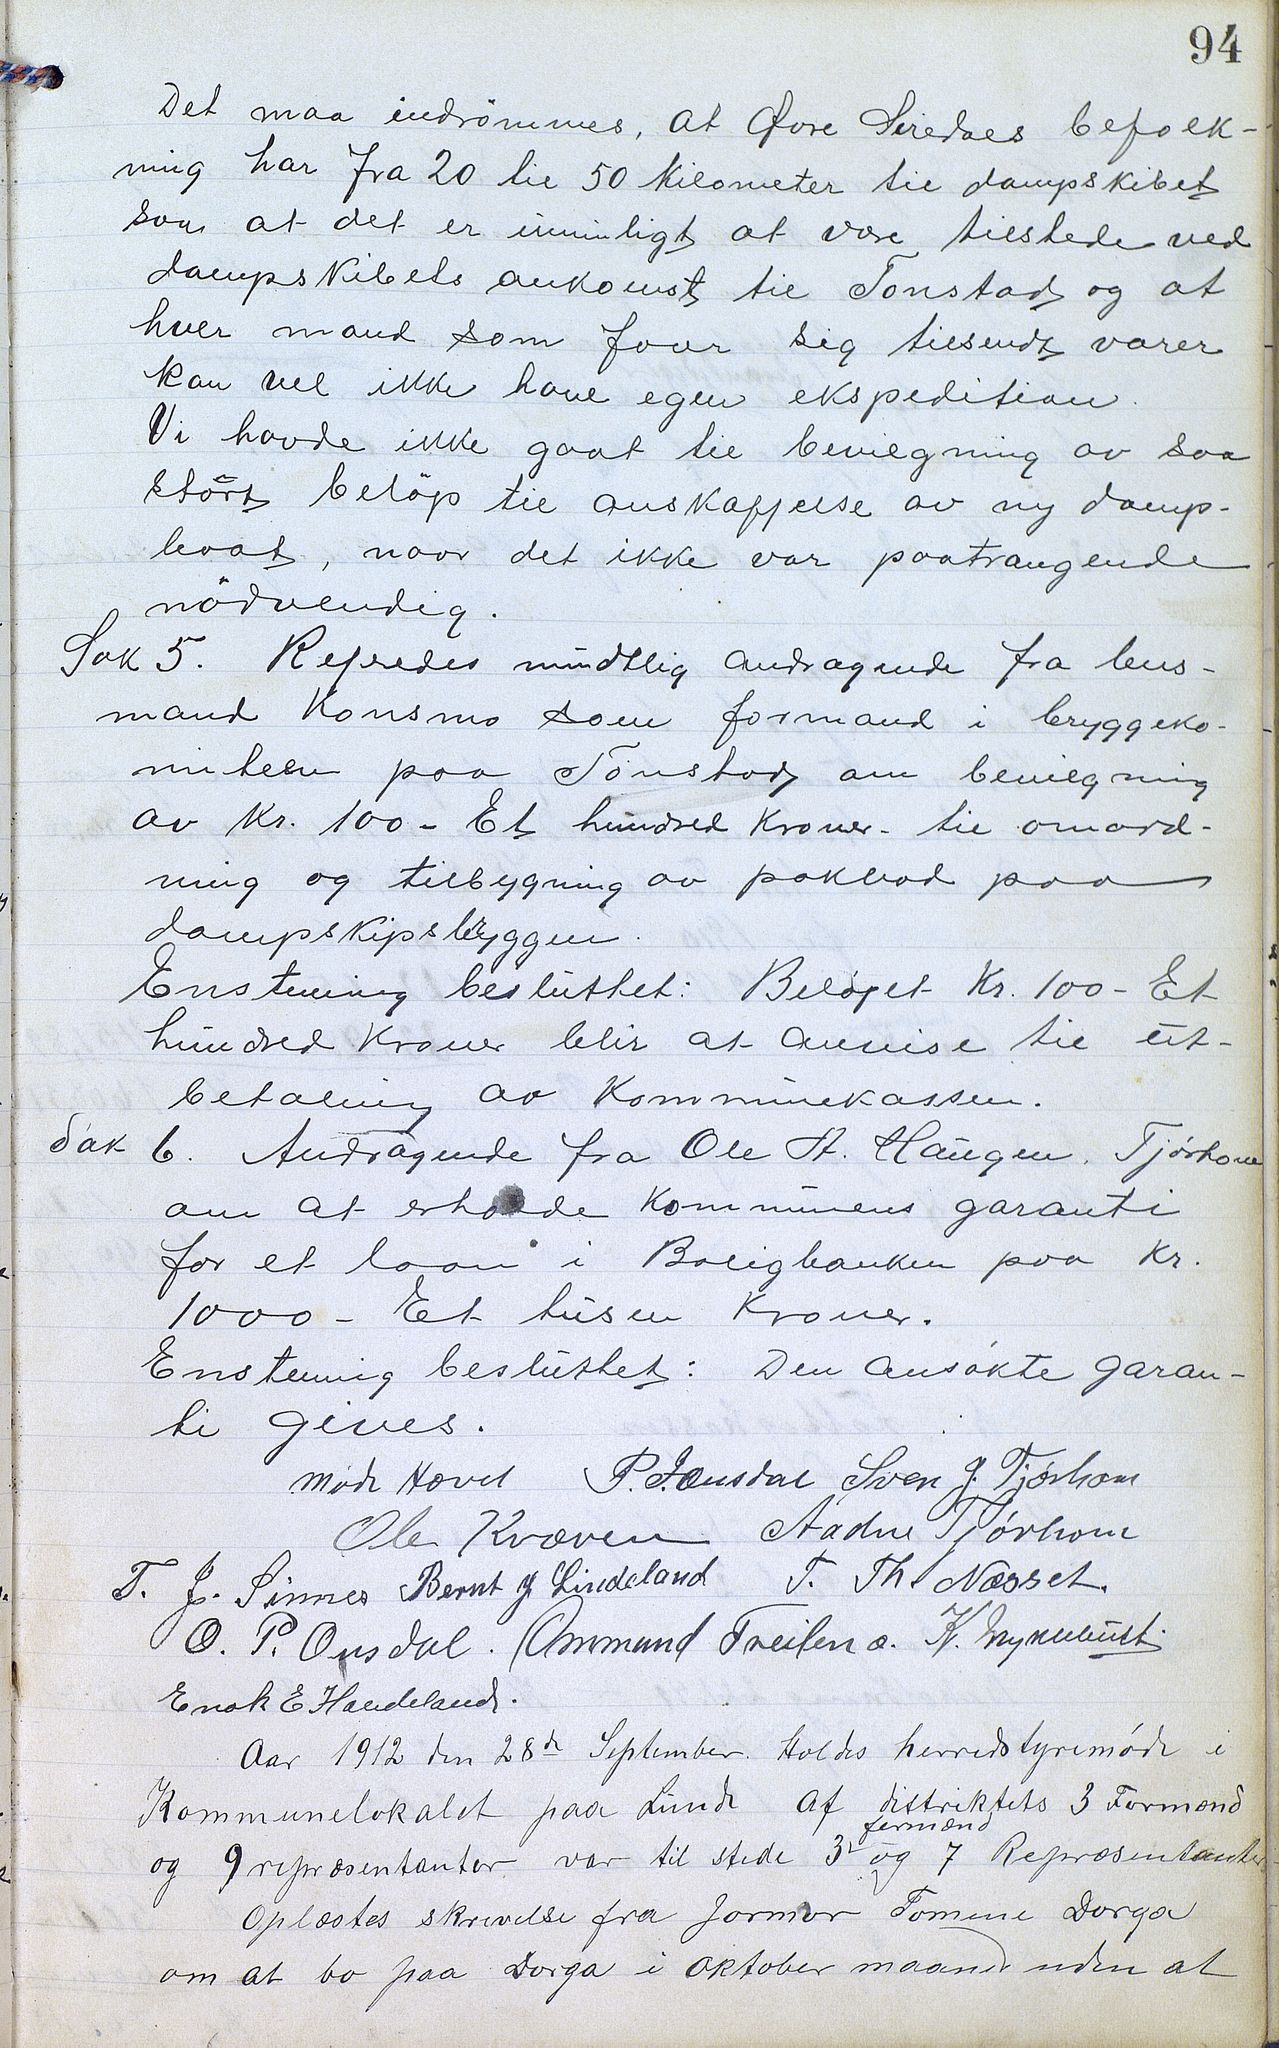 94
Det maa indrömmes, at Övre Siredals befolk-
ning har fra 20 til 50 Kilometer til dampskibet
saa at det er umuligt at være tilstede ved
dampskibets ankomst til Tonstad og at
hver mand som faar sig tilsendt varer
kan vel ikke have egen ekspedition.
Vi havde ikke gaat til bevilgning av saa
stort beløp til anskaffelse av ny damp-
baat, naar det ikke var paatrangende
nödvendig.
Sak 5. Refredes mündtlig andragende fra lens-
mand Konsmo som formand i bryggeko-
miteen paa Tonstad om bevilgning
av Kr. 100 - Et hundred Kroner - til omord-
ning og tilbygning av pakbod paa
dampskipsbryggen.
Enstemig besluttet: Beløpet Kr. 100 - Et
hundred Kroner blir at anvise til ut-
betaling av Kommunekassen.
Sak 6. Andragende fra Ole A. Haugen, Tjørhom
om at erholde Kommunens garanti
for et laan i Boligbanken paa Kr.
1000 - Et tusen Kroner.
Enstemig besluttet: Den ansøkte garan-
ti gives.
Møde Hævet P. Jensdal Sven J. Tjørhom
Ole Kvæven Aadne Tjørhom
T. J. Sinnes Bernt J Lindeland T. Th. Næsset.
O. P. Ousdal. Ommund Treilend. K.
Enok E Haudeland.
Aar 1912 den 28de September. Holdes herredstyremøde i
Kommunelokalet paa Lunde af distriktets 3 Formænd
formænd
og 9 repræsentanter var til stede 3 og 7 Repræsentanter
Oplæstes skrivelse fra Jormor Tomine Dorga
om at bo paa Dorga i Oktober maaned uden at